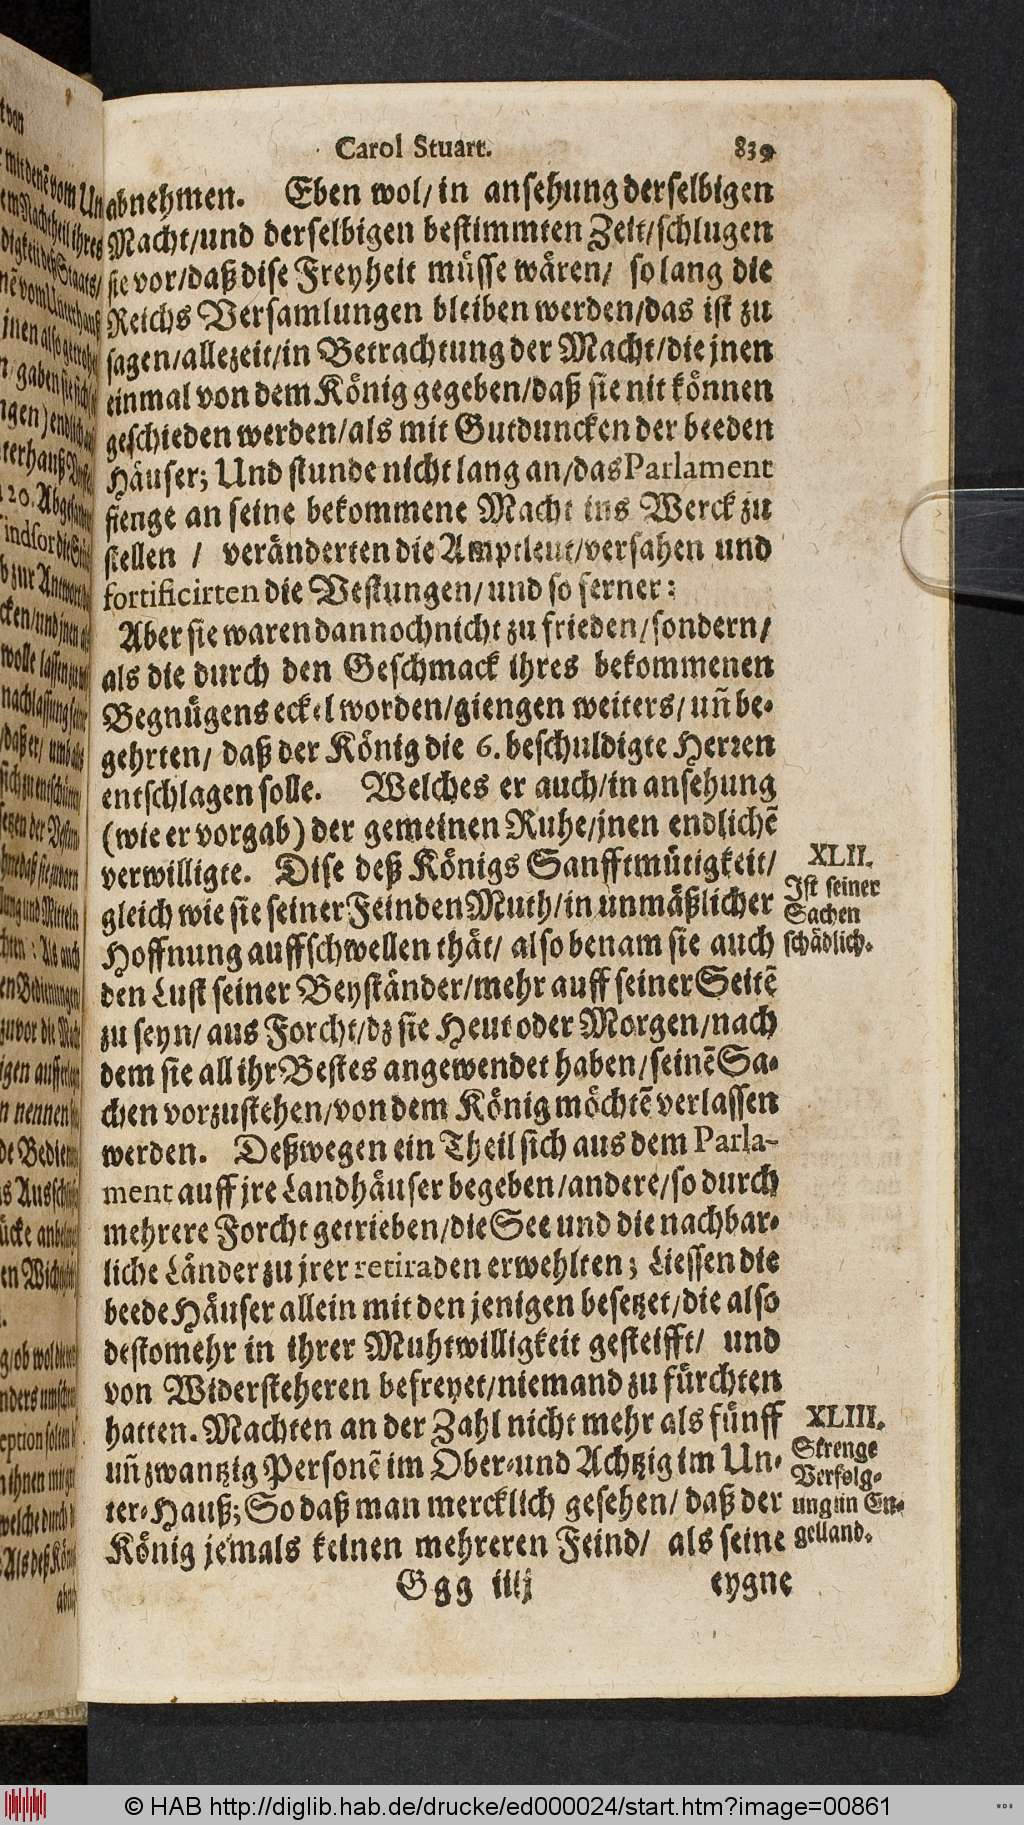 Carol Stuart. 839
abnehmen. Eben wol/ in ansehung derselbigen
Macht/und derselbigen bestimmten Zeit/schlugen
sie vor/daß dise Freyheit müsse wären/ so lang die
Reichs Versamlungen bleiben werden/das ist zu
sagen/allezeit/in Betrachtung der Macht/die jnen
einmal von dem König gegeben/daß sie nit können
geschieden werden/als mit Gutduncken der beeden
Häuser; Und stunde nicht lang an/das Parlament
fienge an seine bekommene Macht ins Werck zu
stellen / veränderten die Amptleut/versahen und
fortificirten die Vestungen/und so ferner:
Aber sie waren dannoch nicht zu frieden/sondern/
als die durch den Geschmack ihres bekommenen
Begnügens eckel worden/giengen weiters/ uñ be-
gehrten/ daß der König die 6. beschuldigte Herren
entschlagen solle. Welches er auch/in ansehung
(wie er vorgab) der gemeinen Ruhe/jnen endlichẽ
verwilligte. Dise deß Königs Sanfftmütigkeit/
gleich wie sie seiner Feinden Muth/in unmäßlicher
Hoffnung auffschwellen thät/ also benam sie auch
den Lust seiner Beyständer/mehr auff seiner Seitẽ
zu seyn/ aus Forcht/dz sie Heut oder Morgen/nach
dem sie all ihr Bestes angewendet haben/seinẽ Sa-
chen vorzustehen/von dem König möchtẽ verlassen
werden. Deßwegen ein Theil sich aus dem Parla-
ment auff jre Landhäuser begeben/andere/so durch
mehrere Forcht getrieben/die See und die nachbar-
liche Länder zu jrer retiraden erwehlten; Liessen die
beede Häuser allein mit den jenigen besetzet/die also
destomehr in ihrer Muhtwilligkeit gesteifft/ und
von Widersteheren befreyet/niemand zu fürchten
hatten. Machten an der Zahl nicht mehr als fünff
uñ zwantzig Personẽ im Ober-und Achtzig im Un-
ter-Hauß; So daß man mercklich gesehen/ daß der
König jemals keinen mehreren Feind/ als seine
Ggg iiij eygne
XLII.
Ist seiner
Sachen
schädlich.
XLIII.
Strenge
Verfolg-
ung in En-
gelland.
© HAB http://diglib.hab.de/drucke/ed000024/start.htm?image=00861